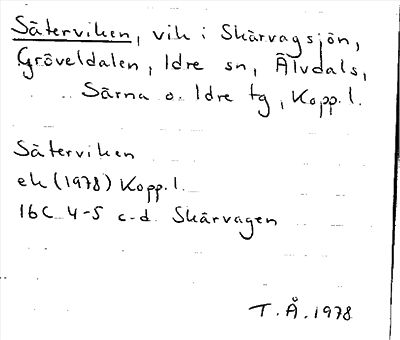 Säterviken, vik i Skärvagsjön,
Gröveldalen, Idre sn, Älvdals,
Särna o. Idre tg, Kopp. l.
Säterviken
ek (1978) Kopp. l.
16C 4-5 c-d Skärvagen
T. Å. 1978